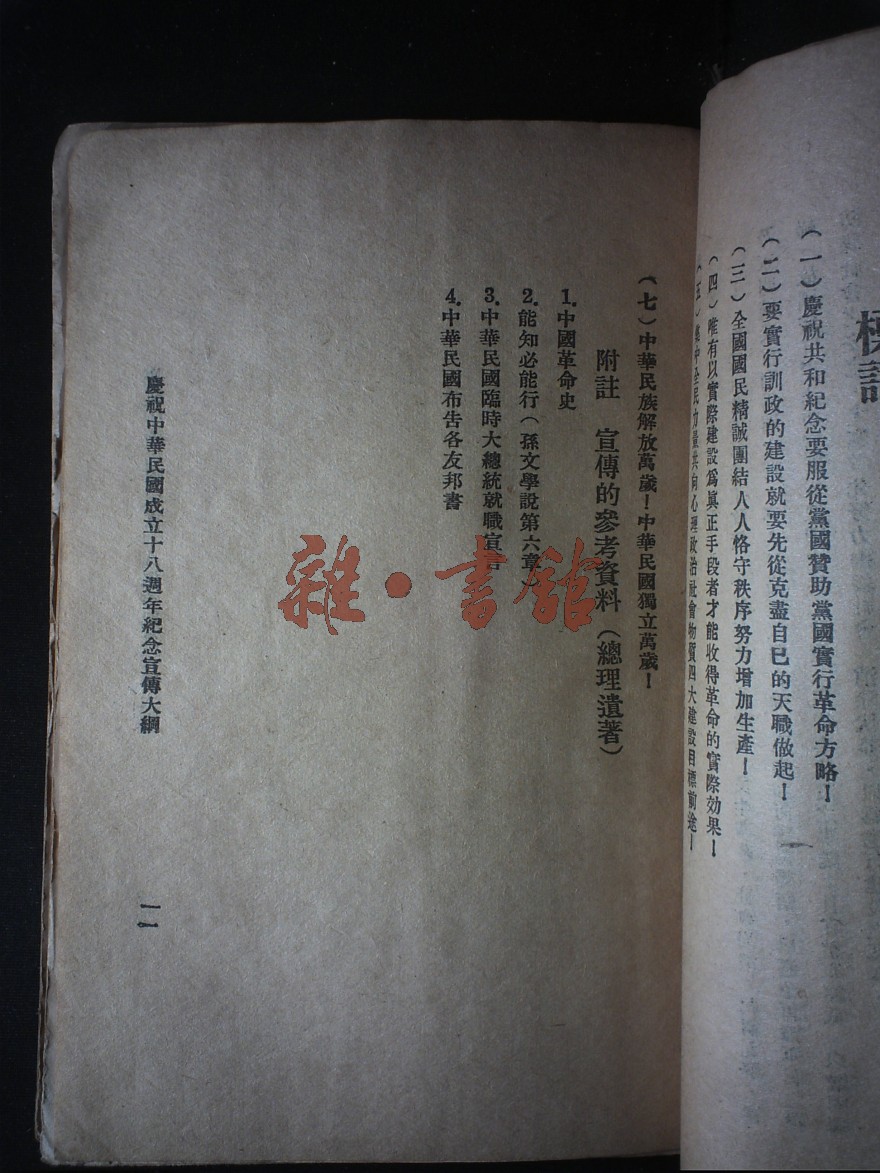 標語
（一）慶祝共和紀念要服從黨國贊助黨國實行革命方略！
（二）要實行訓政的建設就要先從克盡自己的天職做起！
（三）全國國民精誠團結人人恪守秩序努力增加生產！
（四）唯有以實際建設爲眞正手段者才能收得革命的實際效果！
（五）集中全民力量共向心理政治社會物質四大建設目標前途！
（七）中華民族解放萬歲！中華民國獨立萬歲！
附註　宣傳的參考資料（總理遺著）
1.中國革命史
2.能知必能行（孫文學說第六章）
3.中華民國臨時大總統就職宣言
4.中華民國布告各友邦書
慶祝中華民國成立十八週年紀念宣傳大綱
一一
雜·書館